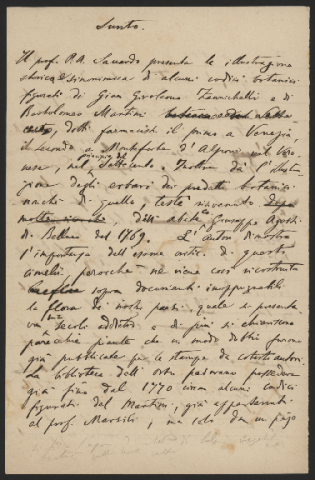 Sunto.
Il prof. P. A. Saccardo presenta le illustrazione
storica e sinonimica di alcuni codici botanici
figurati di Gian Girolamo Zannichelli e di
Bartolomeo Martini
dotti farmacisti il primo a Venezia,
il secondo a Monteforte d'Alpone nel Vero-
nese, nel principio del settecento. Inoltre dà l'illustra-
zione degli erbari dei predetti botanici
nonchè di quello, testè rinvenuto
dell'abate Giuseppe Agosti
di Belluno del 1769. L'autore dimostra
l'importanza dell'esame critic. di questi
cimelii, perocchè ne viene così ricostruita
sopra documenti inoppugnabili
la flora di nostri paesi, quale si presenta-
va secolo addietro e di più si chiariscono
parecchie piante che in modo dubbio furono
già pubblicate per le stampe da cotesti autori.
La biblioteca dell'orto padovano possedeva
già fino dal 1770 circa alcuni codici
figurati del Martini, già appartenuti
al prof. Marsili, ma solo da un pajo